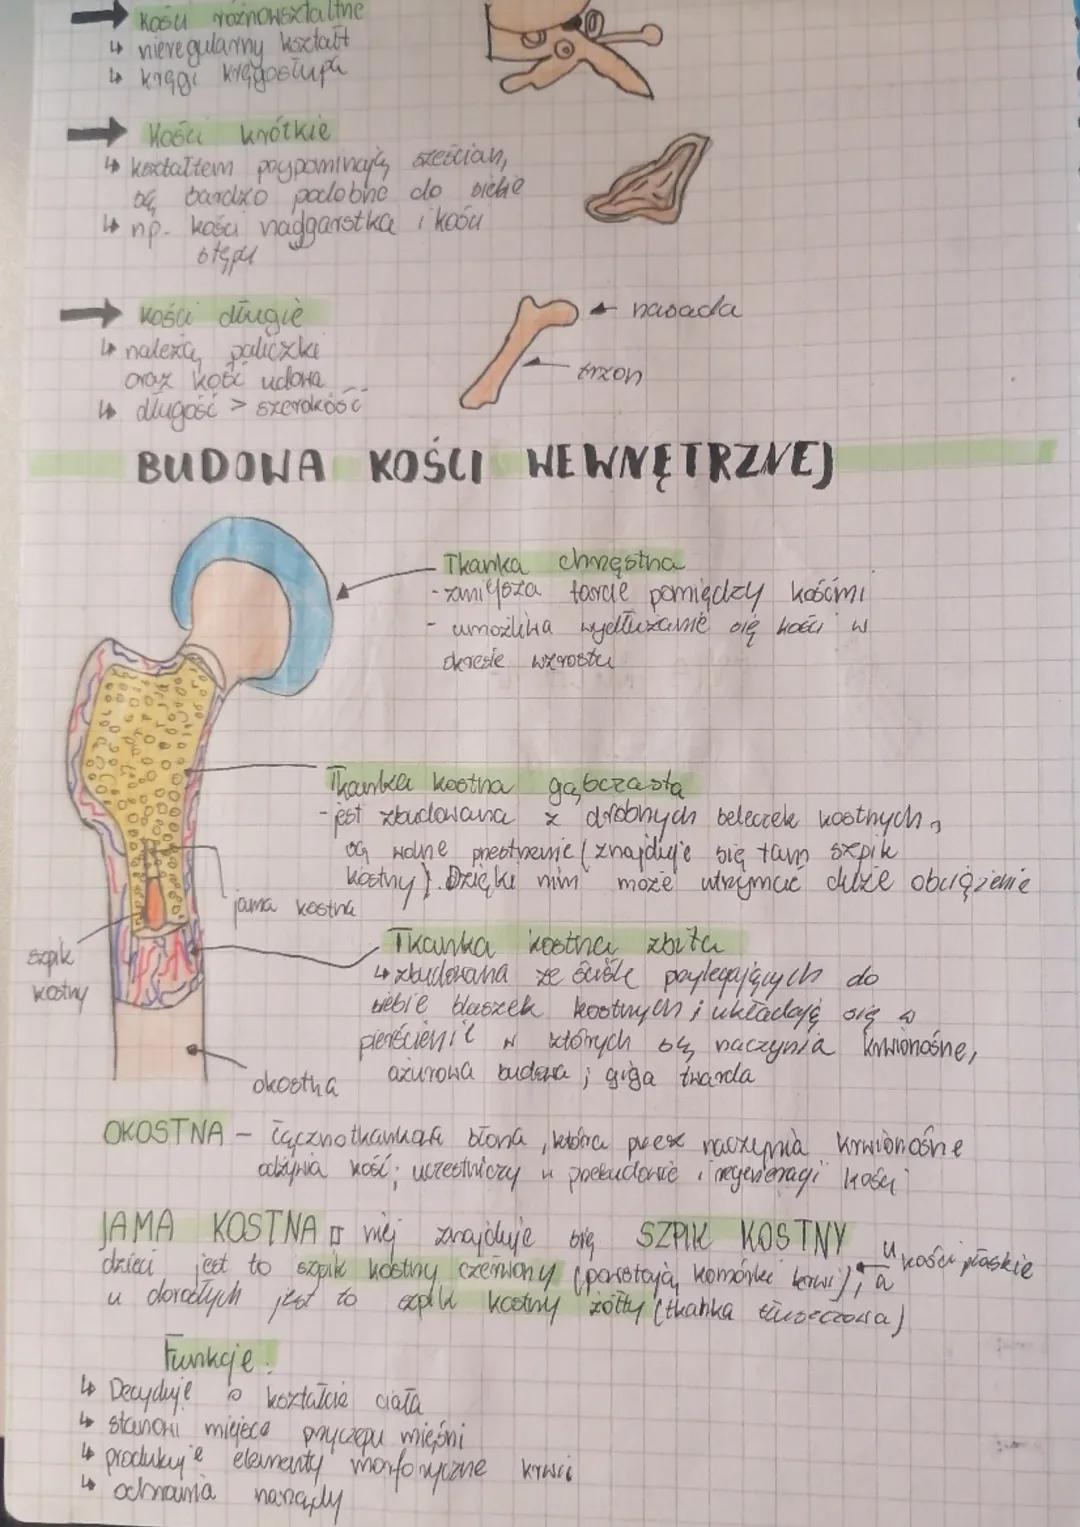 kości różnowształtne
↳ nieregularny kształt
↳ kręgi kręgosłupa
Kości krótkie
↳ kształtem przypominają sześcian,
są bardzo podobne do siebie
↳ np. kości nadgarstka i kości
stępu
kości długie
↳ należą paliczki
oraz kość udowa
↳ długość > szerokość
nasada
trzon
BUDOWA KOŚCI WEWNĘTRZNEJ
Tkanka chrzęstna
- zmniejsza tarcie pomiędzy kośćmi
- umożliwia wydłużanie się kości w
okresie wzrostu
Tkanka kostna gąbczasta
- jest zbudowana z drobnych beleczek kostnych,
są wolne przestrzenie (znajduje się tam szpik
kostny). Dzięki nim może utrzymać duże obciążenie
jama kostna
szpik
kostny
Tkanka kostna zbita
↳ zbudowana ze ściśle przylegających do
siebie blaszek kostnych; układają się w
pierścienie w których są naczynia krwionośne,
ażurowa budowa; giga twarda
okostna
OKOSTNA – łącznotkankowa błona, która przez naczynia krwionośne
odżywia kość; uczestniczy w przebudowie i regeneracji kości
JAMA KOSTNA w niej znajduje się SZPIK KOSTNY u
kości płaskie
dzieci jest to szpik kostny czerwony (powstają komórki krwi), a
u dorosłych jest to szpik kostny żółty (tkanka tłuszczowa)
Funkcje:
↳ Decyduje o kształcie ciała
↳ stanowi miejsce przyczepu mięśni
↳ produkuje elementy morfotyczne krwi
↳ ochrania narządy